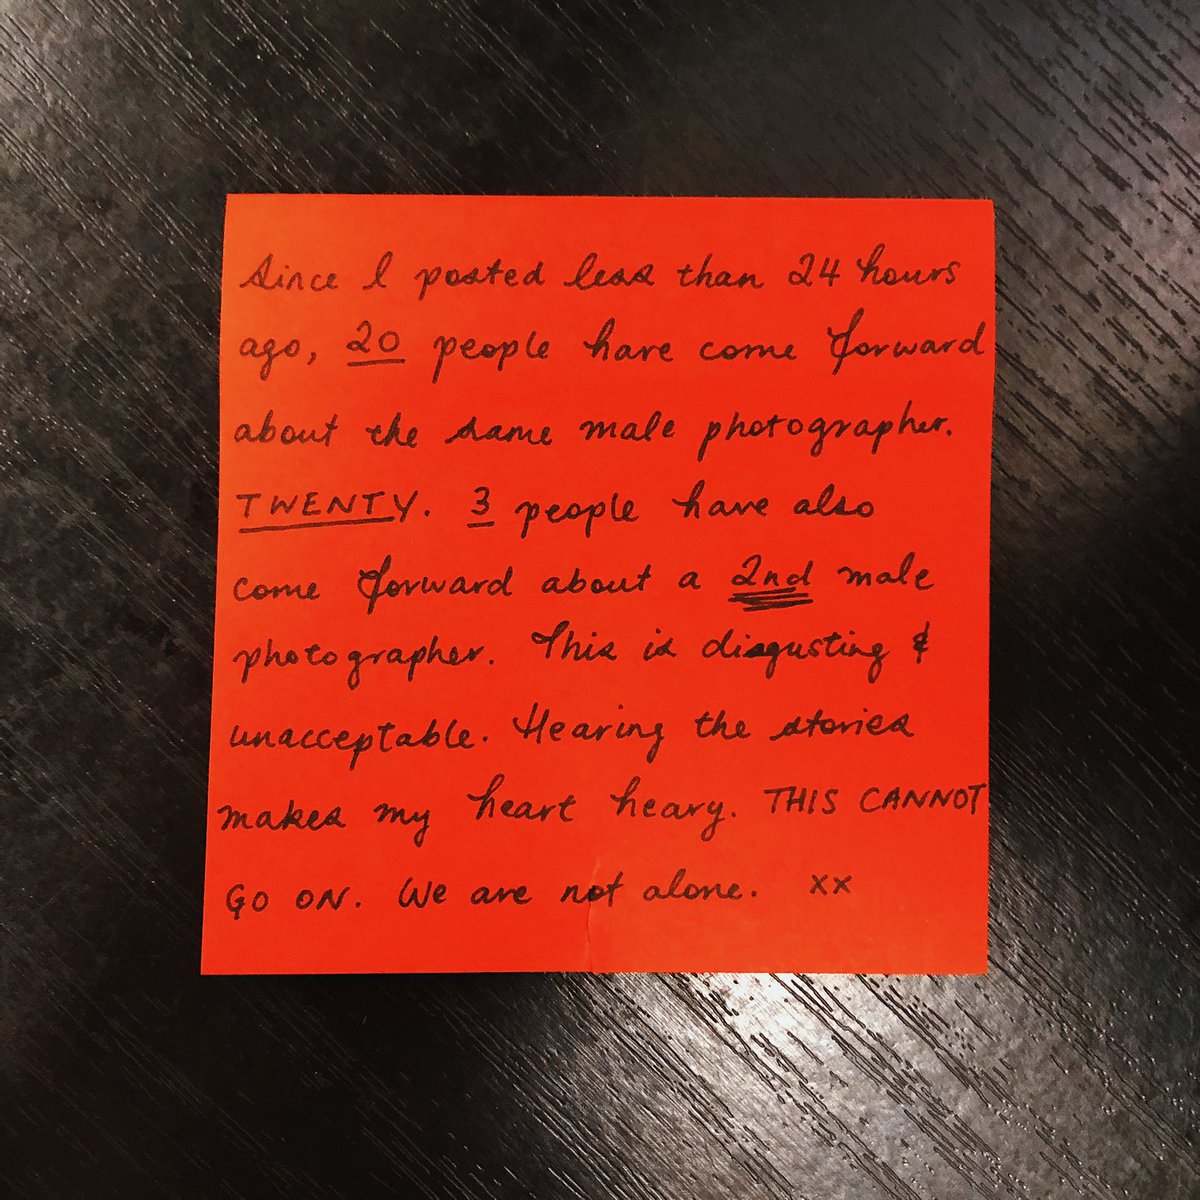 Since I posted less than 24 hours
ago, 20 people have come forward
about the same male photographer.
TWENTY. 3 people have also
come forward about a 2nd male
photographer. This is disgusting &
unacceptable. Hearing the stories
makes my heart heavy. THIS CANNOT
GO ON. We are not alone. xx